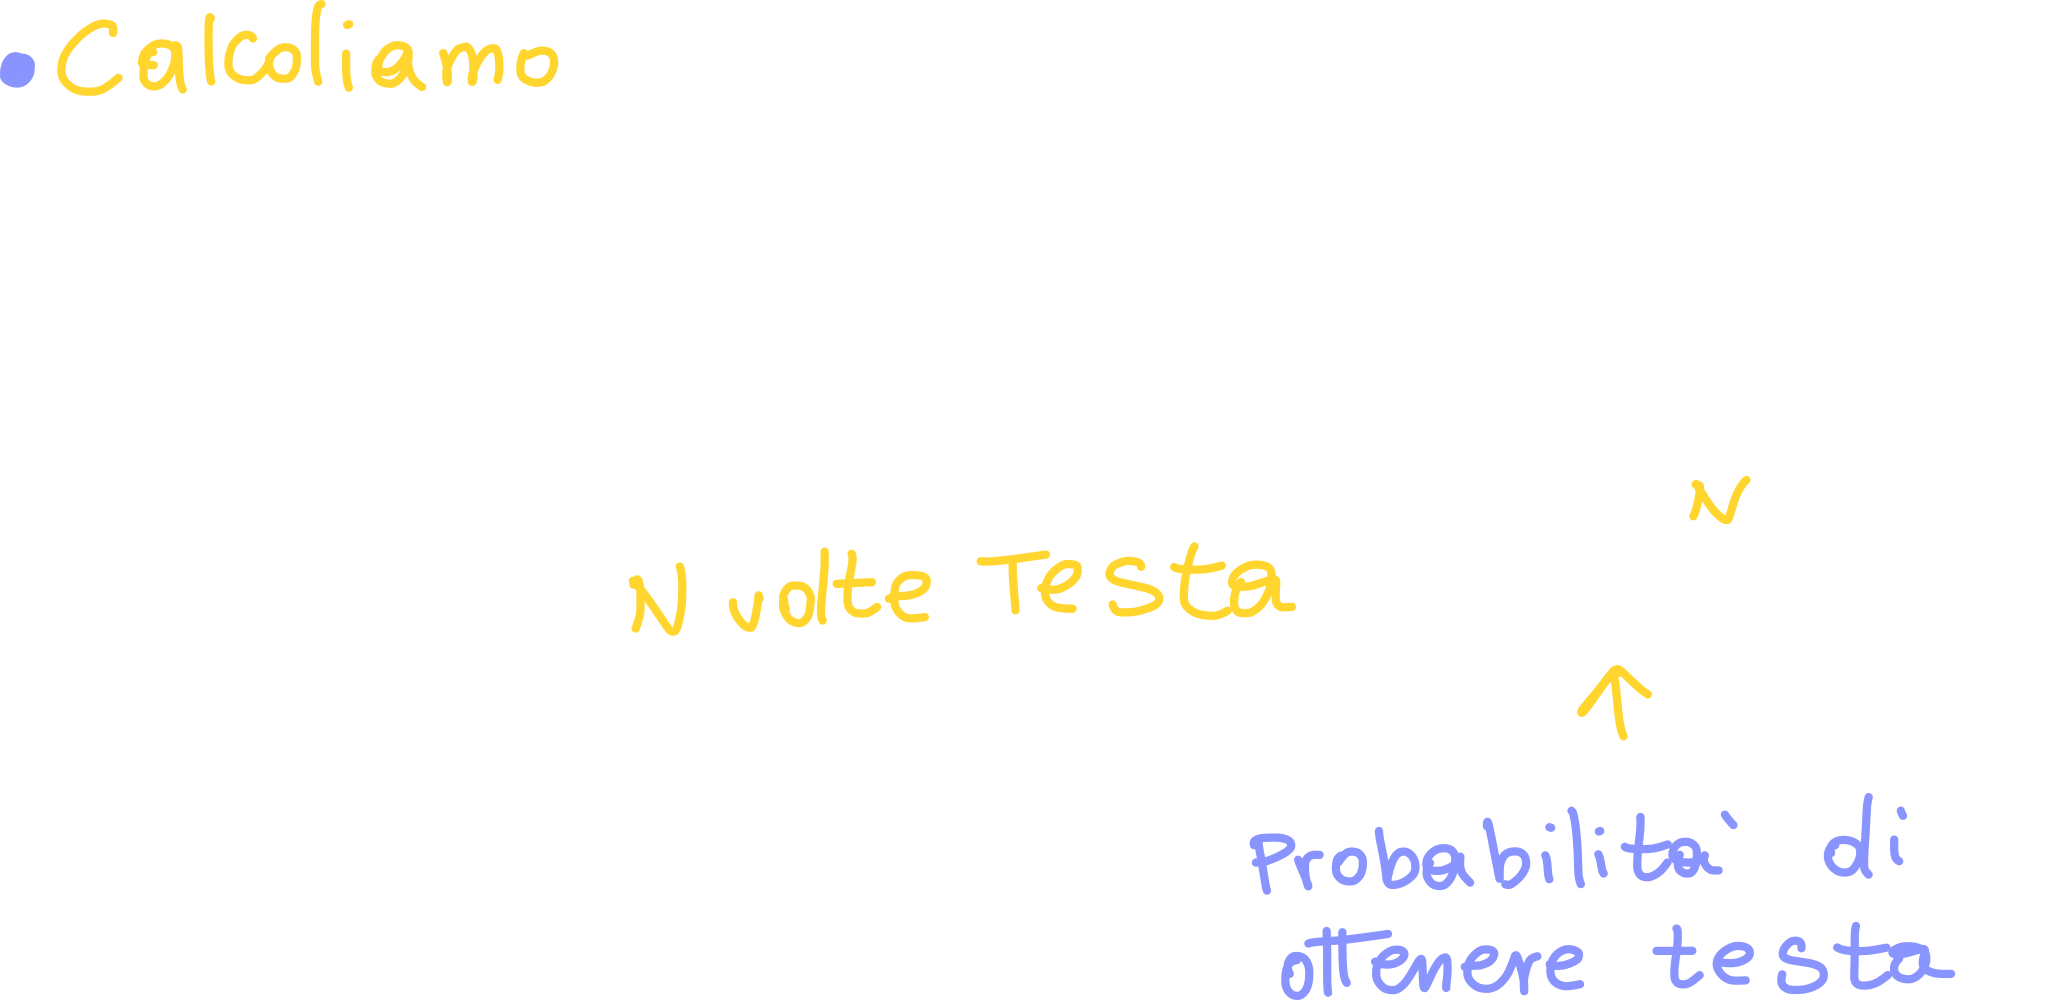 • Calcoliamo
N
N volte Testa
↑
Probabilità di
ottenere testa